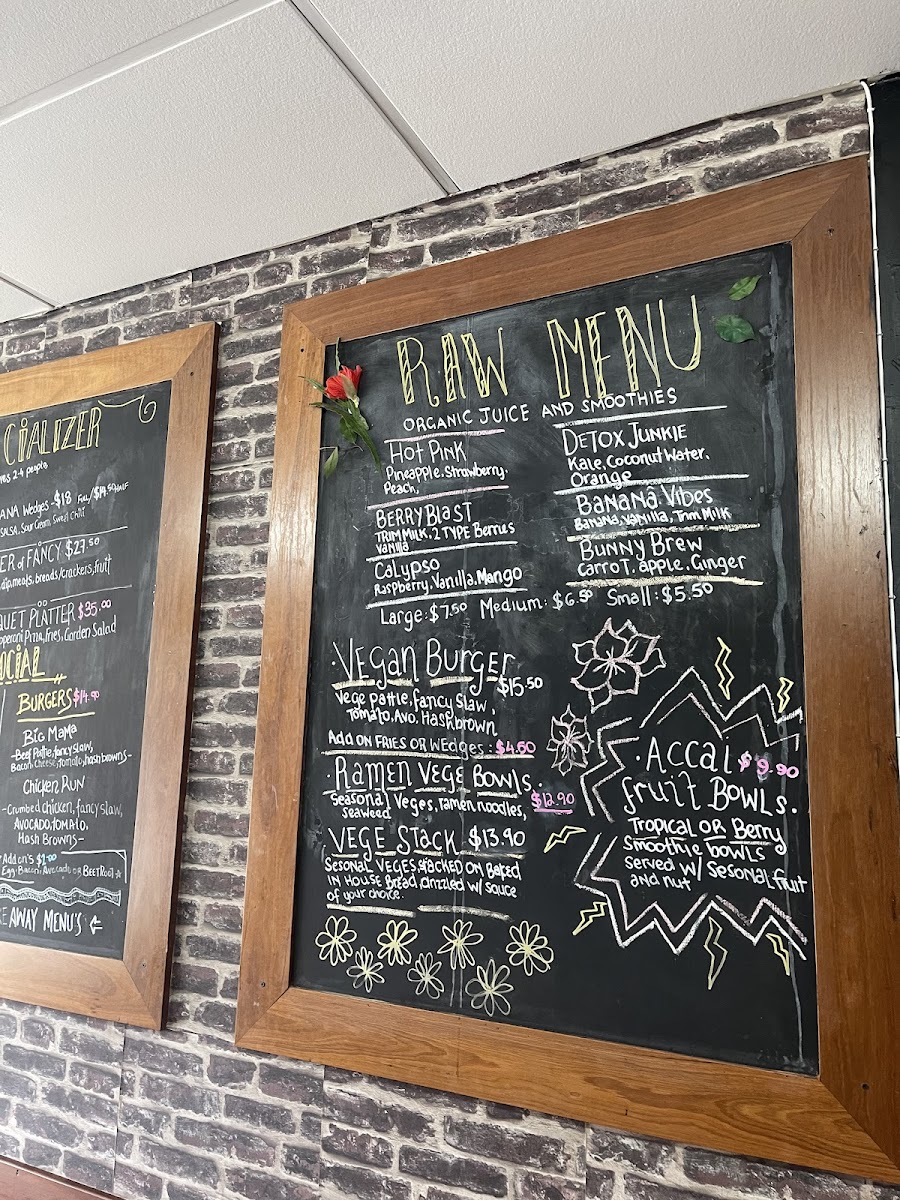 CIALIZER
2-4 people
ANA Wedges - $18 Full / $14.50 HALF
SALSA, Sour Cream, Sweet Chilli
ER of FANCY $27.50
dip, meats, breads/crackers, fruit
QUET PLATTER $35.00
pperoni Pizza, fries, Garden Salad
OCIAL
BURGERS $14.90
BIG MAMA
-Beef Pattie, fancy slaw,
Bacon, Cheese, tomato, hash browns-
CHICKEN RUN
-Crumbed chicken, fancy slaw,
AVOCADO, TOMATO.
Hash Browns-
Add on's $2.00
Egg. Bacon. Avocado or BEETROOT
AWAY MENU'S
RAW MENU
ORGANIC JUICE AND SMOOTHIES
HOT PINK
Pineapple. Strawberry.
Peach,
BERRY BLAST
TRIM MILK, 2 TYPE Berries
Vanilla
Calypso
Raspberry. Vanilla. Mango
DETOX JUNKIE
Kale, Coconut Water.
Orange
BANANA VIBES
Banana, vanilla, Trim Milk
BUNNY BREW
Carrot. apple. Ginger
Large: $7.50 Medium: $6.50 Small: $5.50
·VEGAN BURGER $15.50
Vege pattie, fancy slaw,
Tomato, Avo. Hash brown
Add on FRIES OR WEDGES: $4.50
·RAMEN VEGE BOWLS.
Seasonal Veges, ramen noodles, $12.90
seaweed
VEGE STACK $13.90
SESONAL VEGES STACKED ON BAKED
IN HOUSE BREAD DRIZZLED W/ sauce
of your choice.
·ACCAI $9.90
fruit BOWLS.
TROPICAL OR Berry
Smoothie bowls
served w/ sesonal fruit
and nut